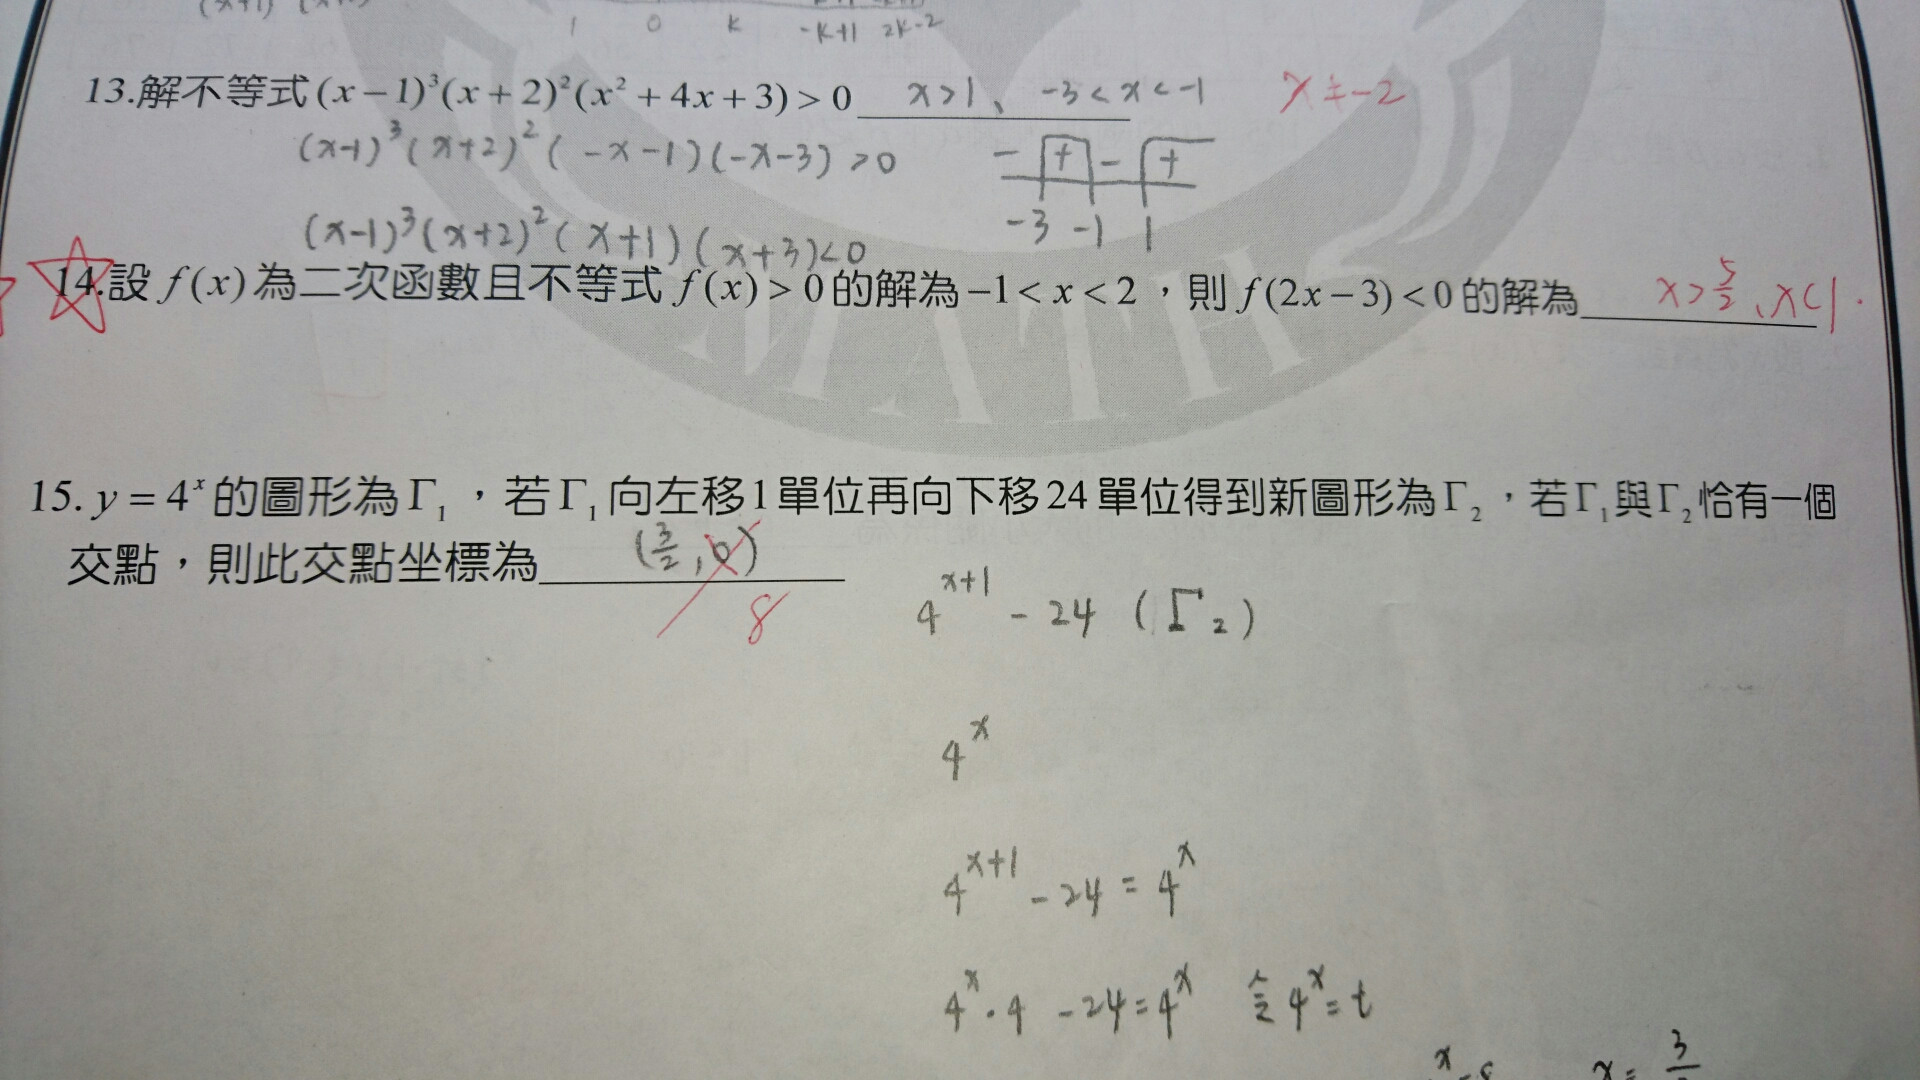 1 0 k -k+1 2k-2
13.解不等式(x−1)³(x+2)²(x²+4x+3)>0 x>1、-3<x<-1 x≠-2
(x-1)³(x+2)²(-x-1)(-x-3)>0 - + - +
(x-1)³(x+2)²(x+1)(x+3)<0 -3 -1 1
14.設f(x)為二次函數且不等式f(x)>0的解為−1<x<2，則f(2x−3)<0的解為 x>5/2、x<1.
15. y=4ˣ的圖形為Γ₁，若Γ₁向左移1單位再向下移24單位得到新圖形為Γ₂，若Γ₁與Γ₂恰有一個
交點，則此交點坐標為 (3/2,0)
8
4^(x+1) -24 (Γ₂)
4^x
MATH
4^(x+1) -24=4^x
4^x·4 -24=4^x 令4^x=t
x= 3